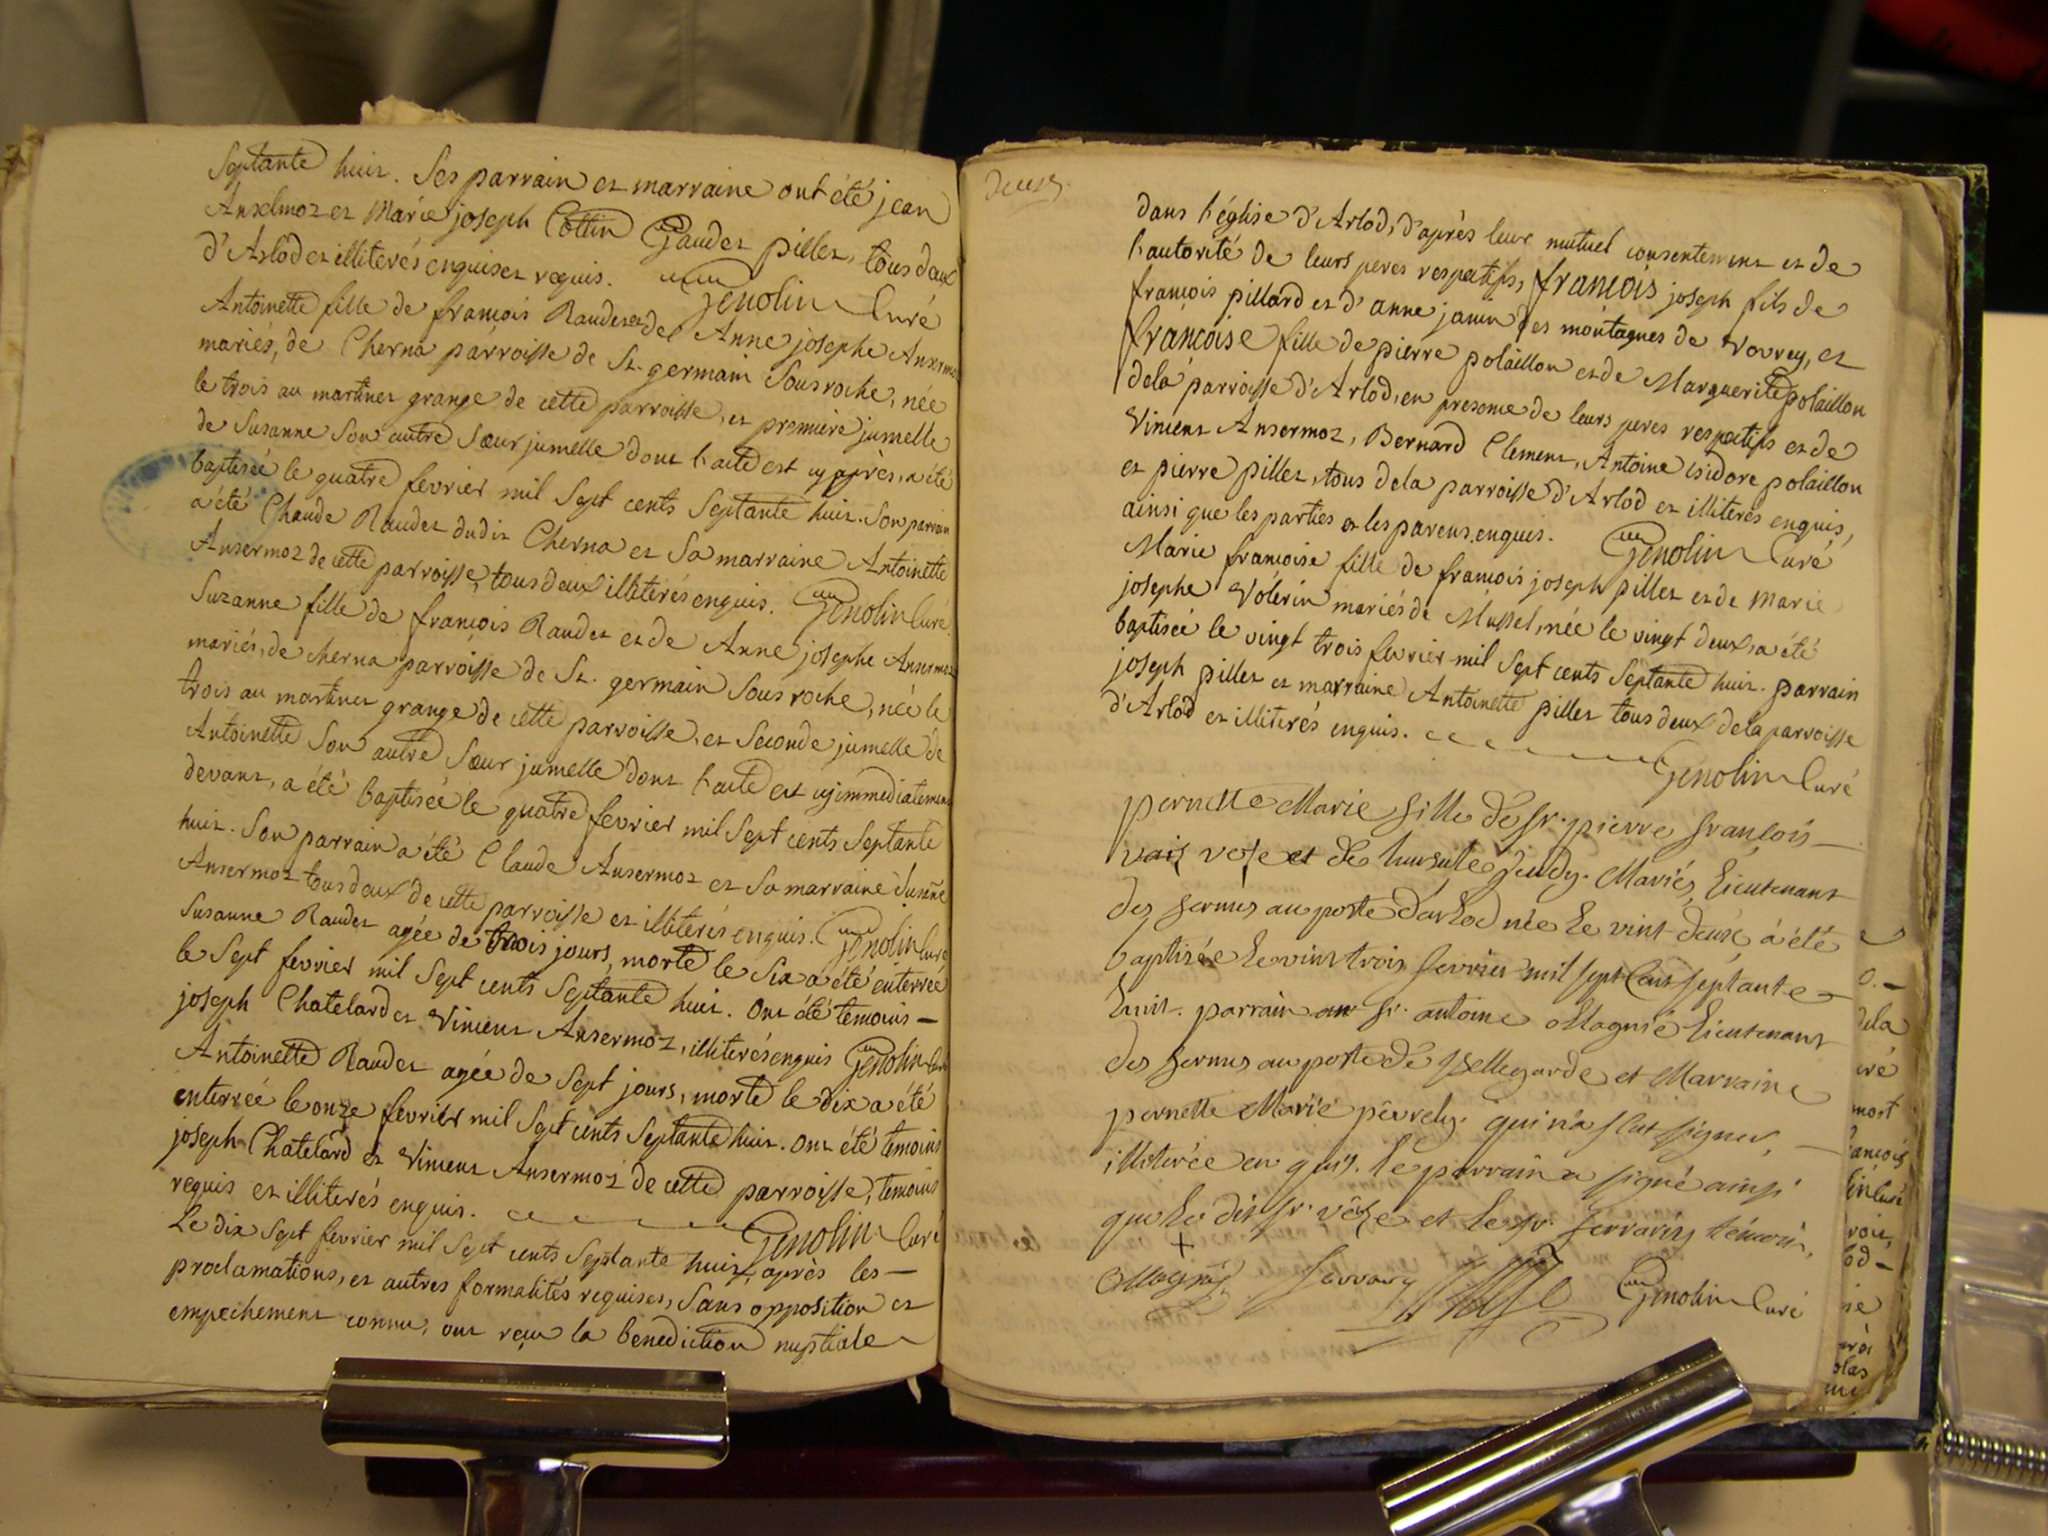 Septante huit. Ses parrain et marraine ont été jean
Anselmoz et Marie joseph Cottin Gaudet pillet, tous deux
d'Arlod et illiterés enquis et requis. Genolin Curé
Antoinette fille de françois Raudet et de Anne josephe Ansermoz
mariés, de Cherna parroisse de St. germain Sousroche, née
le trois au martinet grange de cette parroisse, et premiere jumelle
de Susanne Son autre Sœur jumelle dont l'acte est cy après, a été
baptisée le quatre fevrier mil Sept cents Septante huit. Son parrain
a été Claude Raudet dudit Cherna et Sa marraine Antoinette
Ansermoz de cette parroisse, tous deux illiterés enquis. Genolin Curé
Suzanne fille de françois Raudet et de Anne josephe Ansermoz
mariés, de cherna parroisse de St. germain Sous roche, née le
trois au martinet grange de cette parroisse, et Seconde jumelle de
Antoinette Son autre Sœur jumelle dont l'acte est cy immediatement
devant, a été baptisée le quatre fevrier mil Sept cents Septante
huit. Son parrain a été Claude Ansermoz et Sa marraine Susanne
Ansermoz tous deux de cette parroisse et illiterés enquis. Genolin Curé
Susanne Raudet agée de trois jours, morte le Six a été enterrée
le Sept fevrier mil Sept cents Septante huit. Ont été temoins
joseph Chatelard et Vincent Ansermoz, illiterés enquis Genolin Curé
Antoinette Raudet agée de Sept jours, morte le dix a été
enterrée le onze fevrier mil Sept cents Septante huit. Ont été temoins
joseph Chatelard et Vincent Ansermoz de cette parroisse, temoins
requis et illiterés enquis. Genolin Curé
Le dix Sept fevrier mil Sept cents Septante huit, après les
proclamations, et autres formalités requises, Sans opposition et
empechement connu, ont reçu la benediction nuptiale
deux
dans l'église d'Arlod, d'après leur mutuel consentement et de
l'autorité de leurs peres respectifs, françois joseph fils de
françois pillard et d'anne des montagnes de Vovrey, et
françoise fille de pierre polaillon et de Marguerite polaillon
de la parroisse d'Arlod, en presence de leurs peres respectifs et de
Vincent Ansermoz, Bernard Clement, Antoine isidore polaillon
et pierre pillet, tous de la parroisse d'Arlod et illiterés enquis,
ainsi que les parties et les parens enquis. Genolin Curé
Marie françoise fille de françois joseph pillet et de Marie
josephe Volérin mariés de Mussel, née le vingt deux, a été
baptisée le vingt trois fevrier mil Sept cents Septante huit. parrain
joseph pillet et marraine Antoinette pillet tous deux de la parroisse
d'Arlod et illiterés enquis.
Genolin Curé
pernette Marie fille de sr. pierre françois
et de hursule Mariés, Lieutenant
des fermes au poste d'arlod née le vint deux, a été
baptisée le vint trois fevrier mil sept cent septante
huit. parrain sr. antoine Lieutenant
des fermes au poste de Bellegarde et Marraine
pernette Marie qui n'a sçut signer,
illiterée en quis. le parrain a signé ainsi
que le dit sr. et le sr. témoin,
Genolin Curé